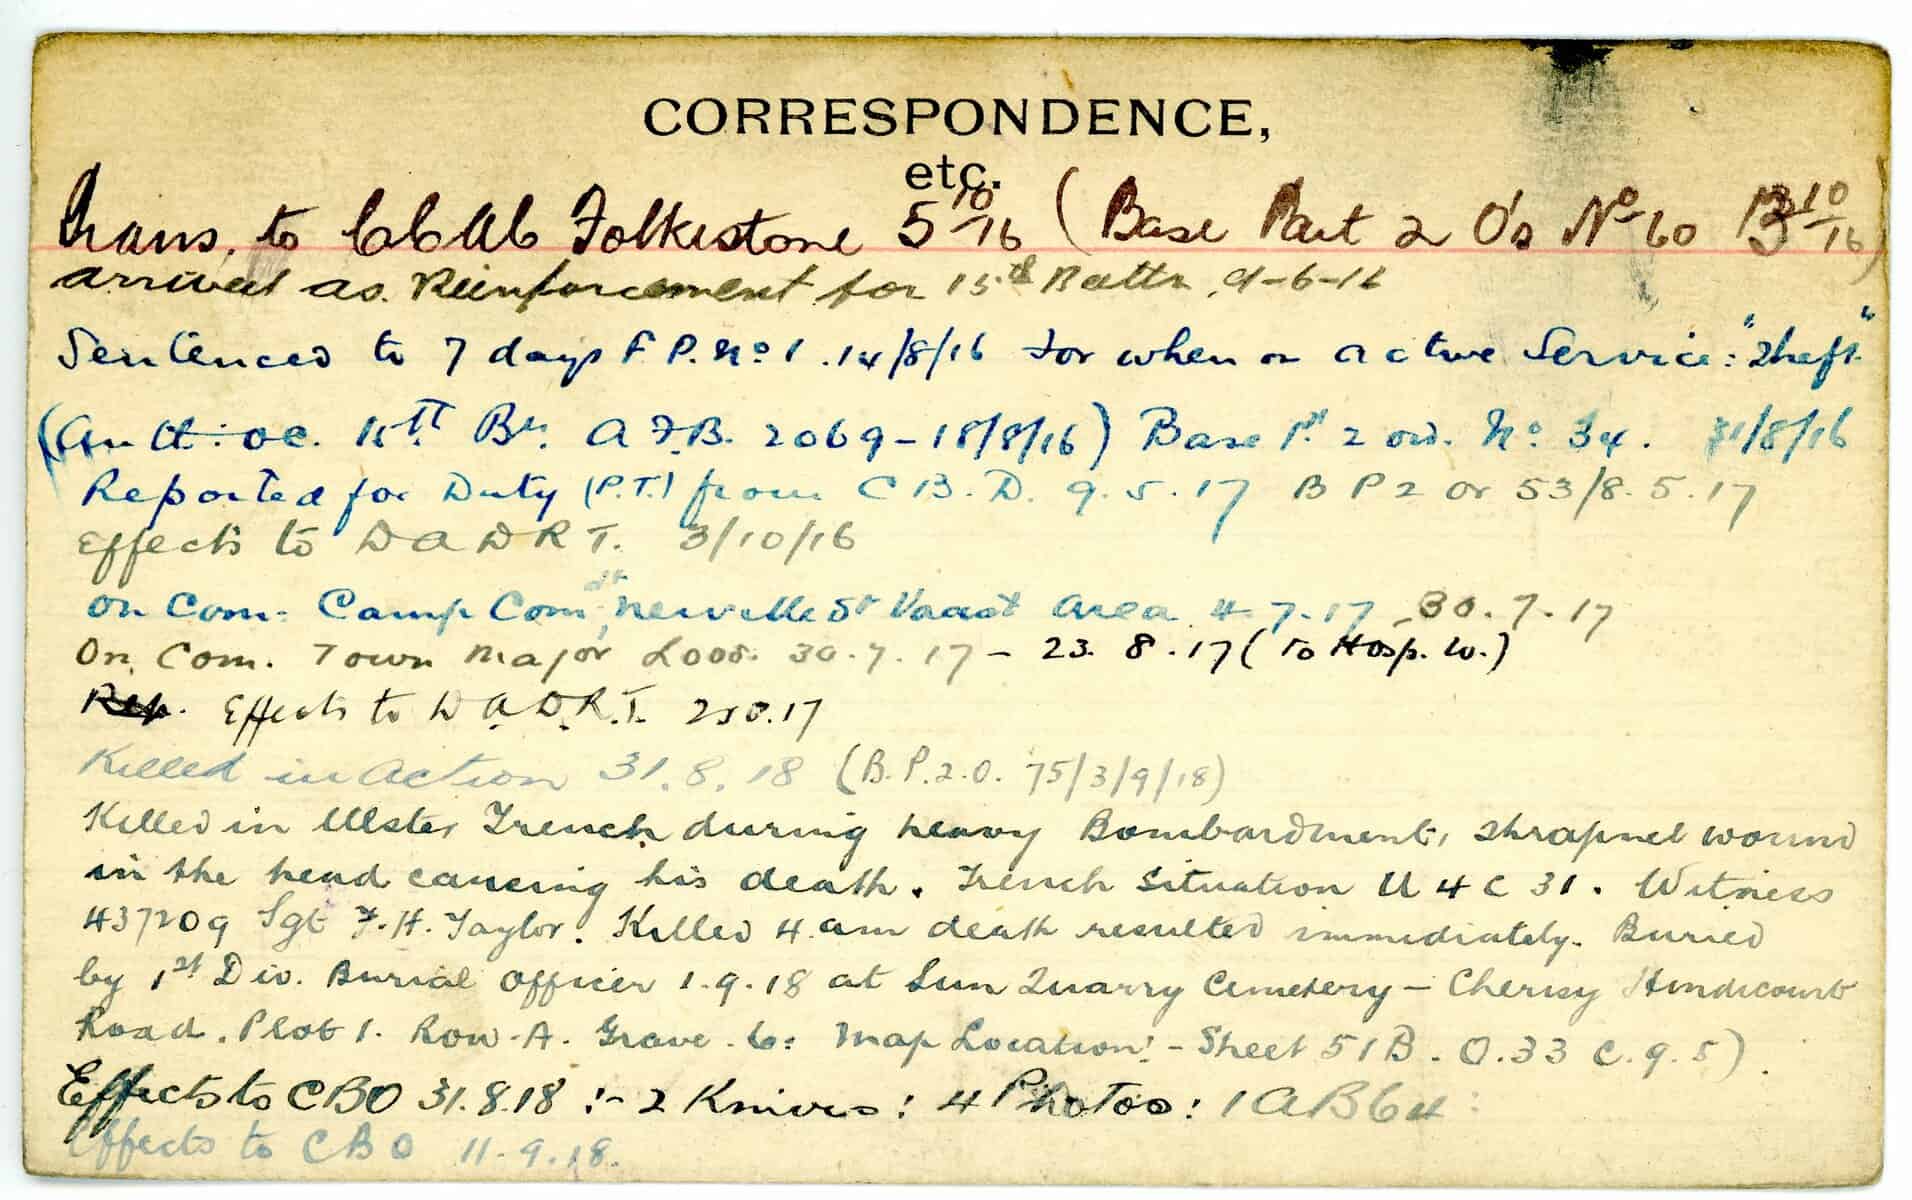 CORRESPONDENCE,
etc.
Trans. to CCAC Folkestone 5 10/16 (Base Part 2 O's No 60 13 10/16)
arrived as Reinforcement for 15th Battn 9-6-16
Sentenced to 7 days F.P. No 1. 14/8/16 for when on active Service: "Theft"
(Auth: OC. 15th Bn. A.F.B. 2069 - 18/8/16) Base Pt 2 ord. No. 34. 31/8/16
Reported for Duty (P.T.) from C.B.D. 9.5.17 B P 2 or 53/8.5.17
Effects to D A D R T. 3/10/16
On Com: Camp Comdt Neuville St Vaast Area 4.7.17 - 30.7.17
On Com. Town Major Loos. 30.7.17 - 23.8.17 (To Hosp. W.)
Rep. Effects to D.A.D.R.T. 17
Killed in Action 31.8.18 (B.P.2.O. 75/3/9/18)
Killed in Ulster Trench during heavy Bombardment, shrapnel wound
in the head causing his death. Trench situation U 4 C 31. Witness
437209 Sgt F.H. Taylor. Killed 4 am death resulted immediately. Buried
by 1st Div. Burial Officer 1.9.18 at Sun Quarry Cemetery - Cherisy Hendicourt
Road. Plot 1. Row. A. Grave. 6: Map Location: - Sheet 51B. O.33 C.9.5).
Effects to CBO 31.8.18 :- 2 Knives: 4 Photos: 1 AB64:
Effects to CBO 11.9.18.